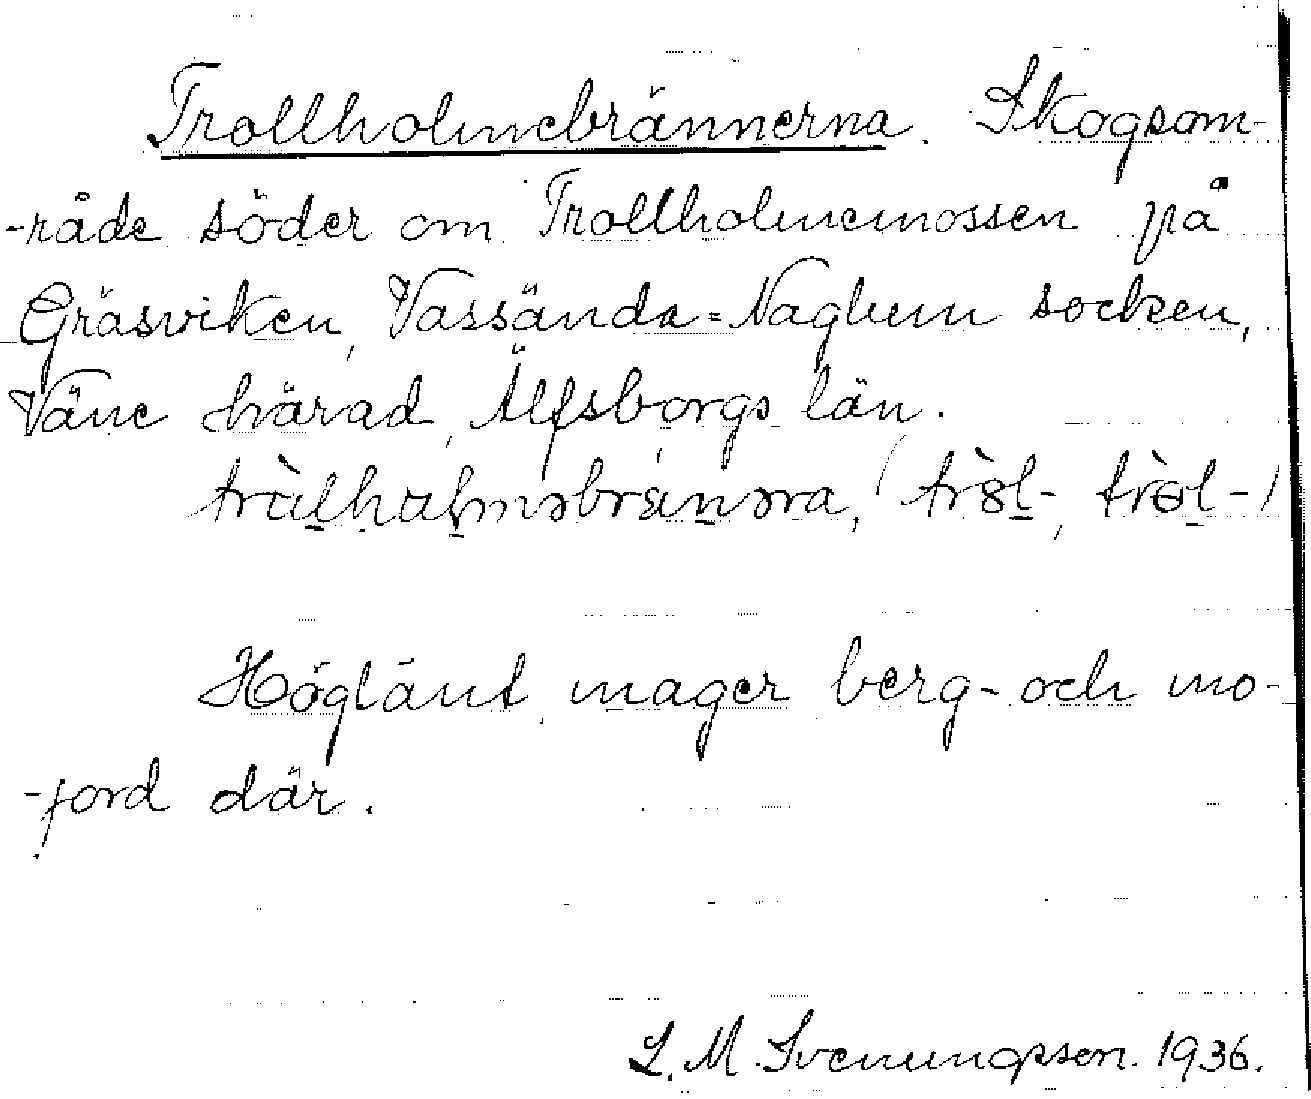 Trollholmebrännerna. Skogsom-
-råde söder om Trollholmemossen på
Gräsviken, Vassända=Naglum socken,
Väne härad, Älfsborgs län.
trɑ̀lhɑlməbrɛnəra, (trȍl-, trɵ̀l-)
Höglänt, mager berg- och mo-
-jord där.
L. M. Svenungsson. 1936.